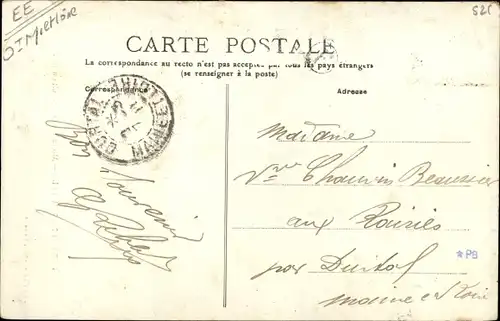 EE
521
CARTE POSTALE
La correspondance au recto n'est pas acceptée par tous les pays étrangers
(se renseigner à la poste)
Correspondance
Adresse
DURTAL
MAINE ET LOIRE
Bon Souvenir
Madame
Vve Chauvin Beaumier
aux Rairies
par Durtal
Maine et Loire
*PB